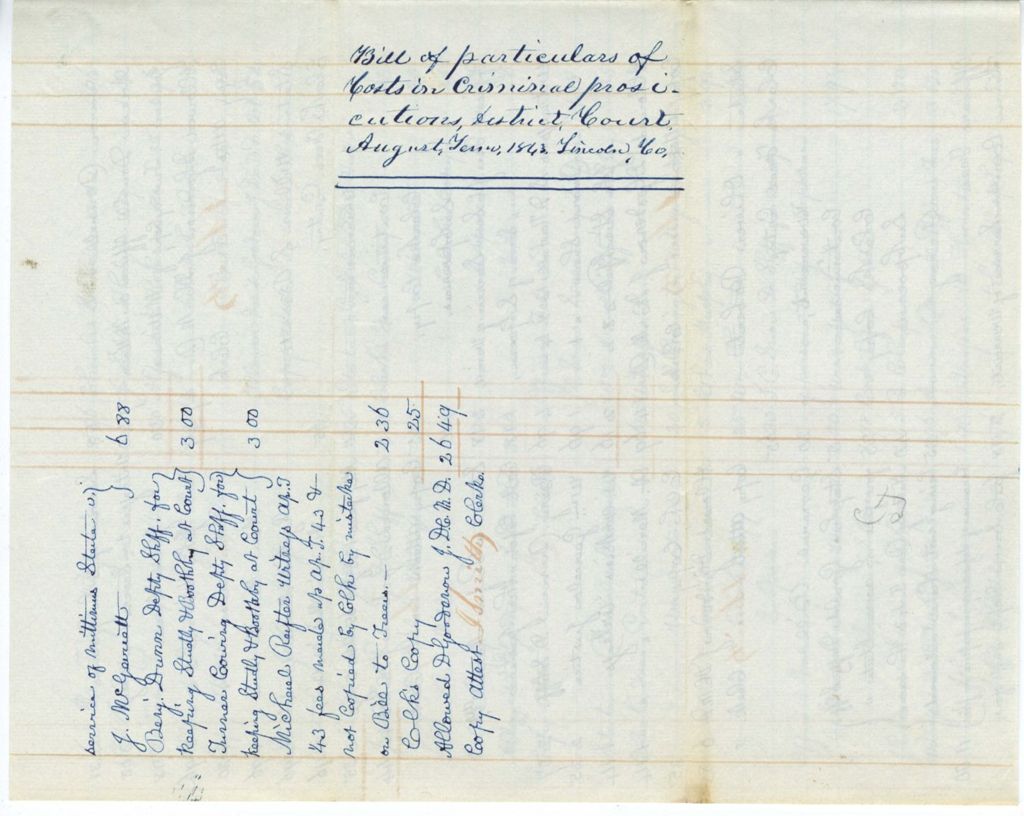 Bill of particulars of
Costs in Criminal prosi-
cutions, District, Court,
August, Term, 1843. Lincoln, Co,
service of mittimus State v.
J. McGarrett 6 88
Benj. Dunn Depty Shff. for
Keeping Studly & Boothby at Court 3 00
Turner Depty Shff. for
Keeping Studly & Boothby at Court 3 00
Michael Rafter Witness Ap. T
43 fees made up Ap. T. 43 &
not Copied by Clke by mistake
on Bill to Treas. — 2 36
Clks Copy 25
Allowed D Goodenow J. D. C. M. D. 26 49
Copy Attest Clerk.